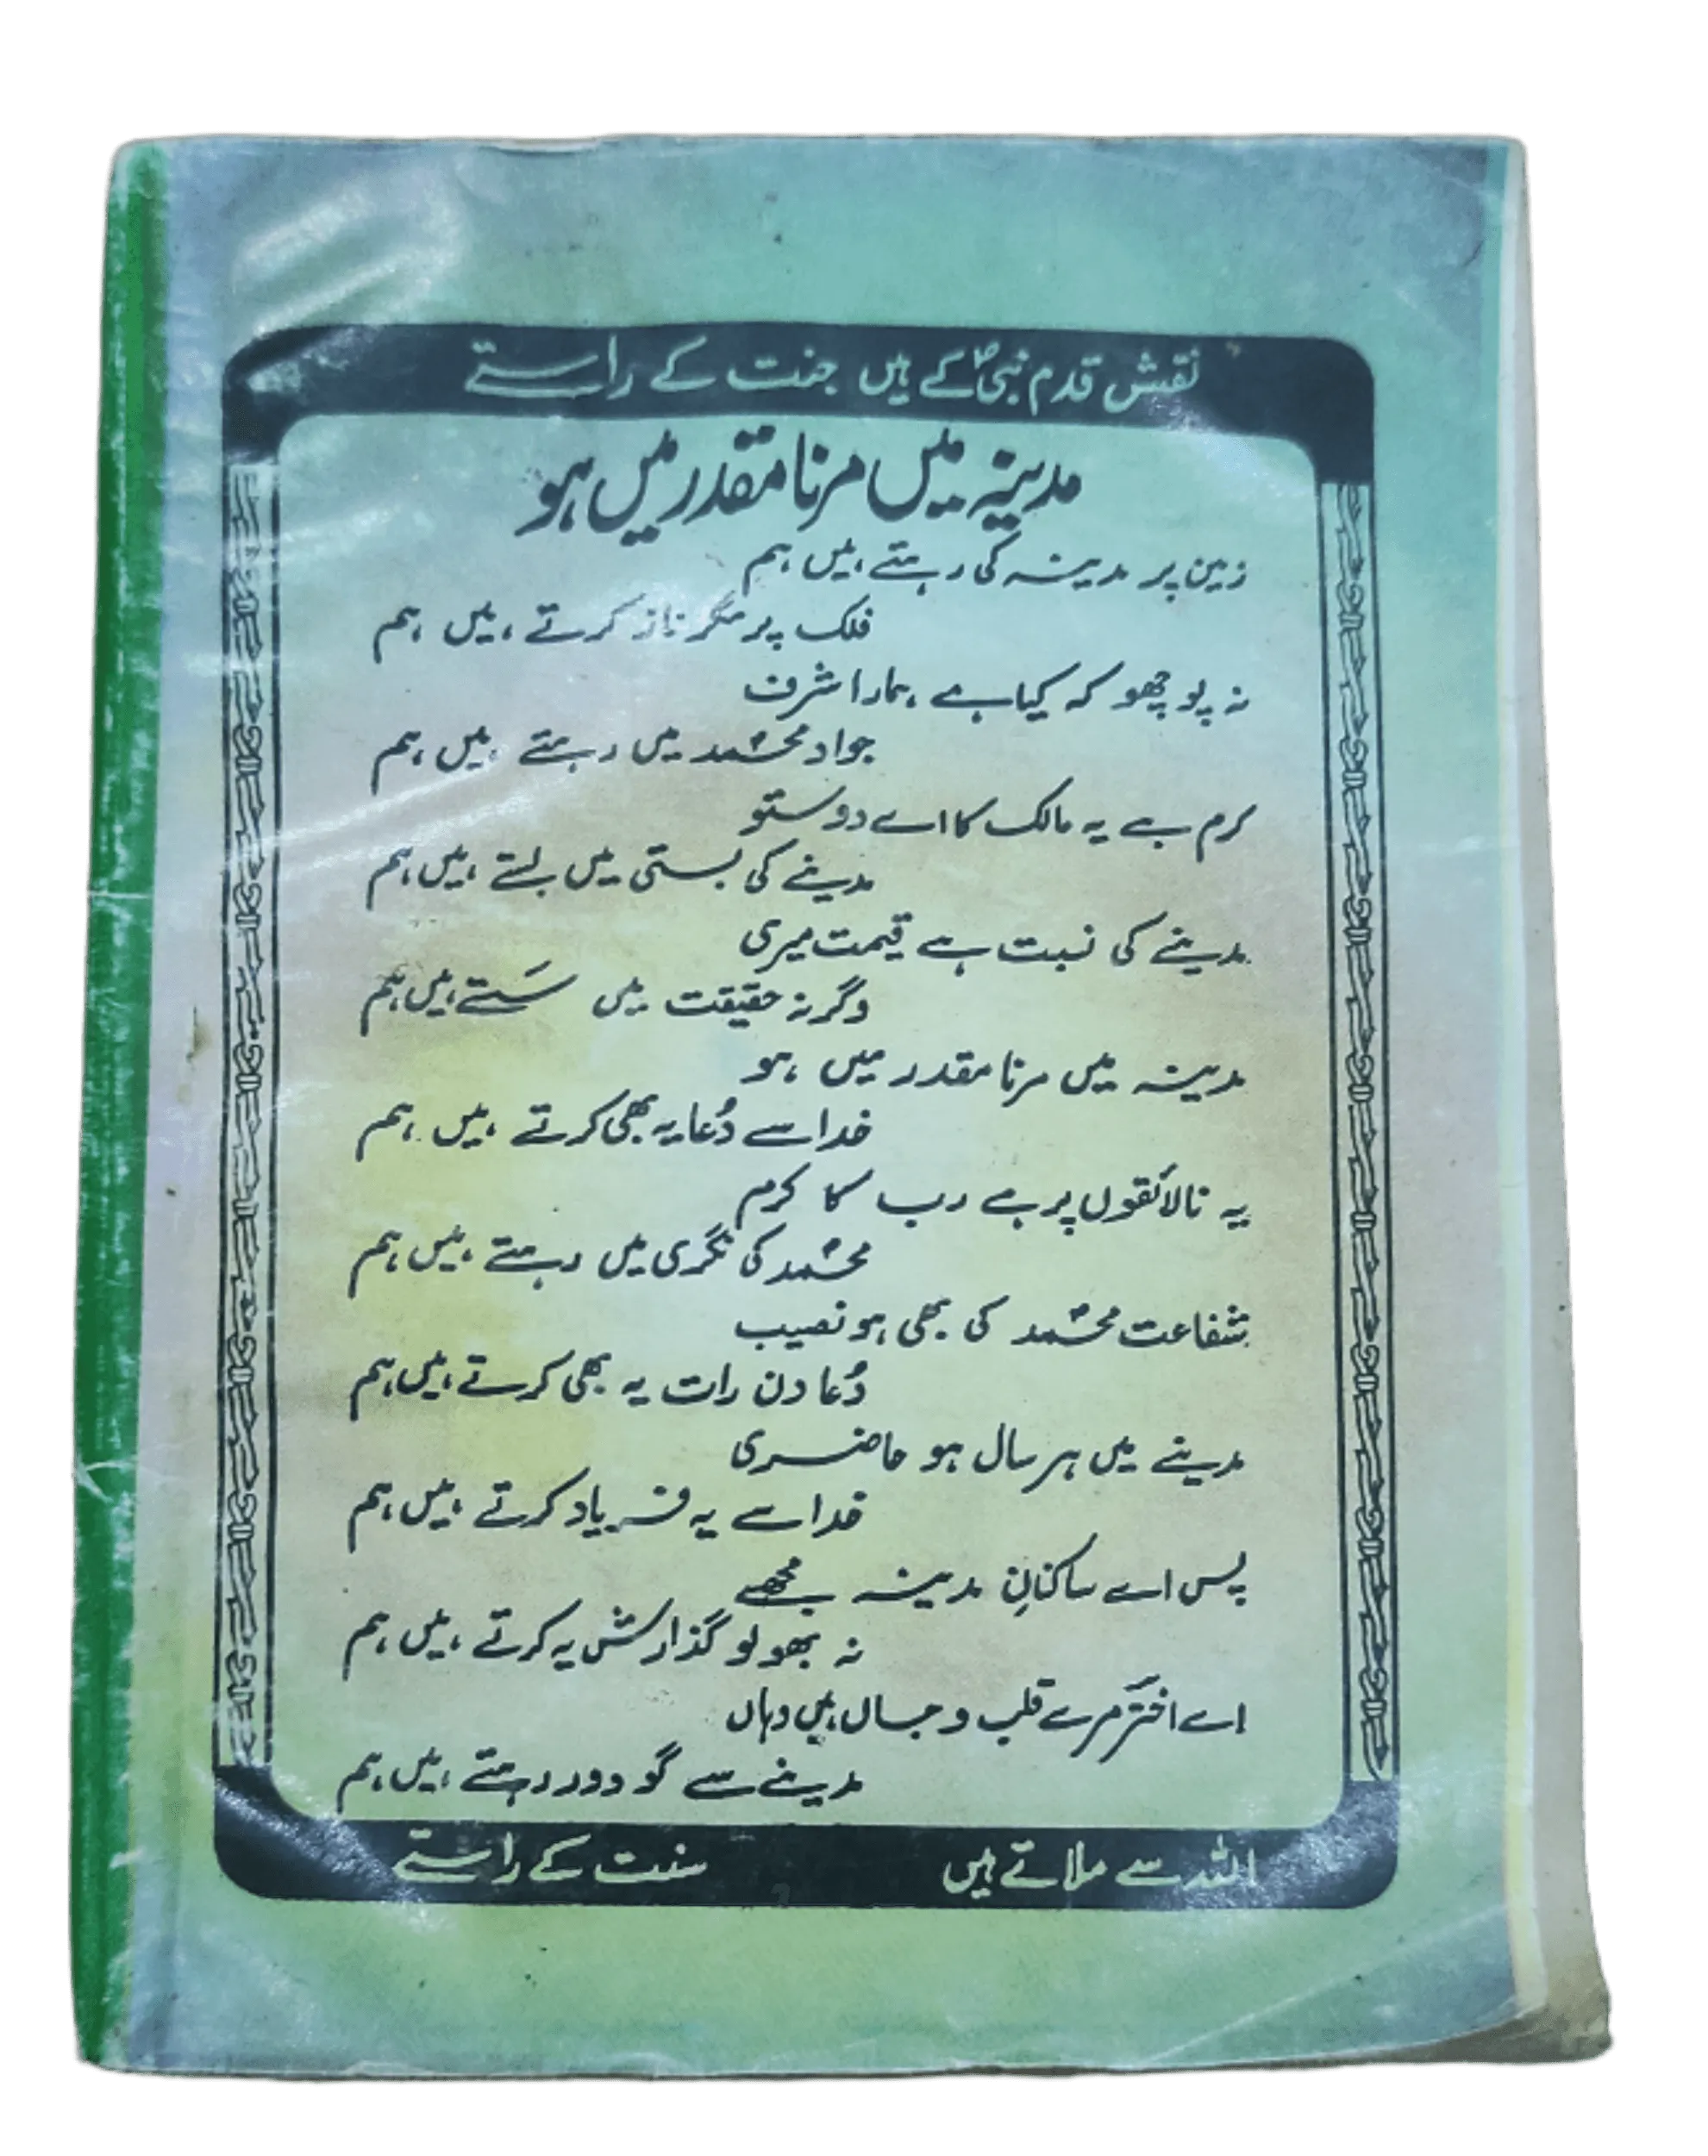 نقش قدم نبیؐ کے ہیں جنت کے راستے
مدینہ میں مرنا مقدر میں ہو
زمین پر مدینہ کی رہتے ہیں ہم
فلک پر مگر ناز کرتے ہیں ہم
نہ پوچھو کہ کیا ہے ہمارا شرف
جوار محمد میں رہتے ہیں ہم
کرم ہے یہ مالک کا اے دوستو
مدینے کی بستی میں بستے ہیں ہم
مدینے کی نسبت ہے قیمت میری
وگرنہ حقیقت میں سَستے ہیں ہم
مدینہ میں مرنا مقدر میں ہو
خدا سے دُعا یہ بھی کرتے ہیں ہم
یہ نالائقوں پر ہے رب کا کرم
محمد کی نگری میں رہتے ہیں ہم
شفاعت محمد کی بھی ہو نصیب
دُعا دن رات یہ بھی کرتے ہیں ہم
مدینے میں ہر سال ہو حاضری
خدا سے یہ فریاد کرتے ہیں ہم
پس اے ساکنانِ مدینہ مجھے
نہ بھولو گذارش یہ کرتے ہیں ہم
اے اخترؔ مرے قلب و جاں ہیں وہاں
مدینے سے گو دور رہتے ہیں ہم
اللہ سے ملاتے ہیں سنت کے راستے